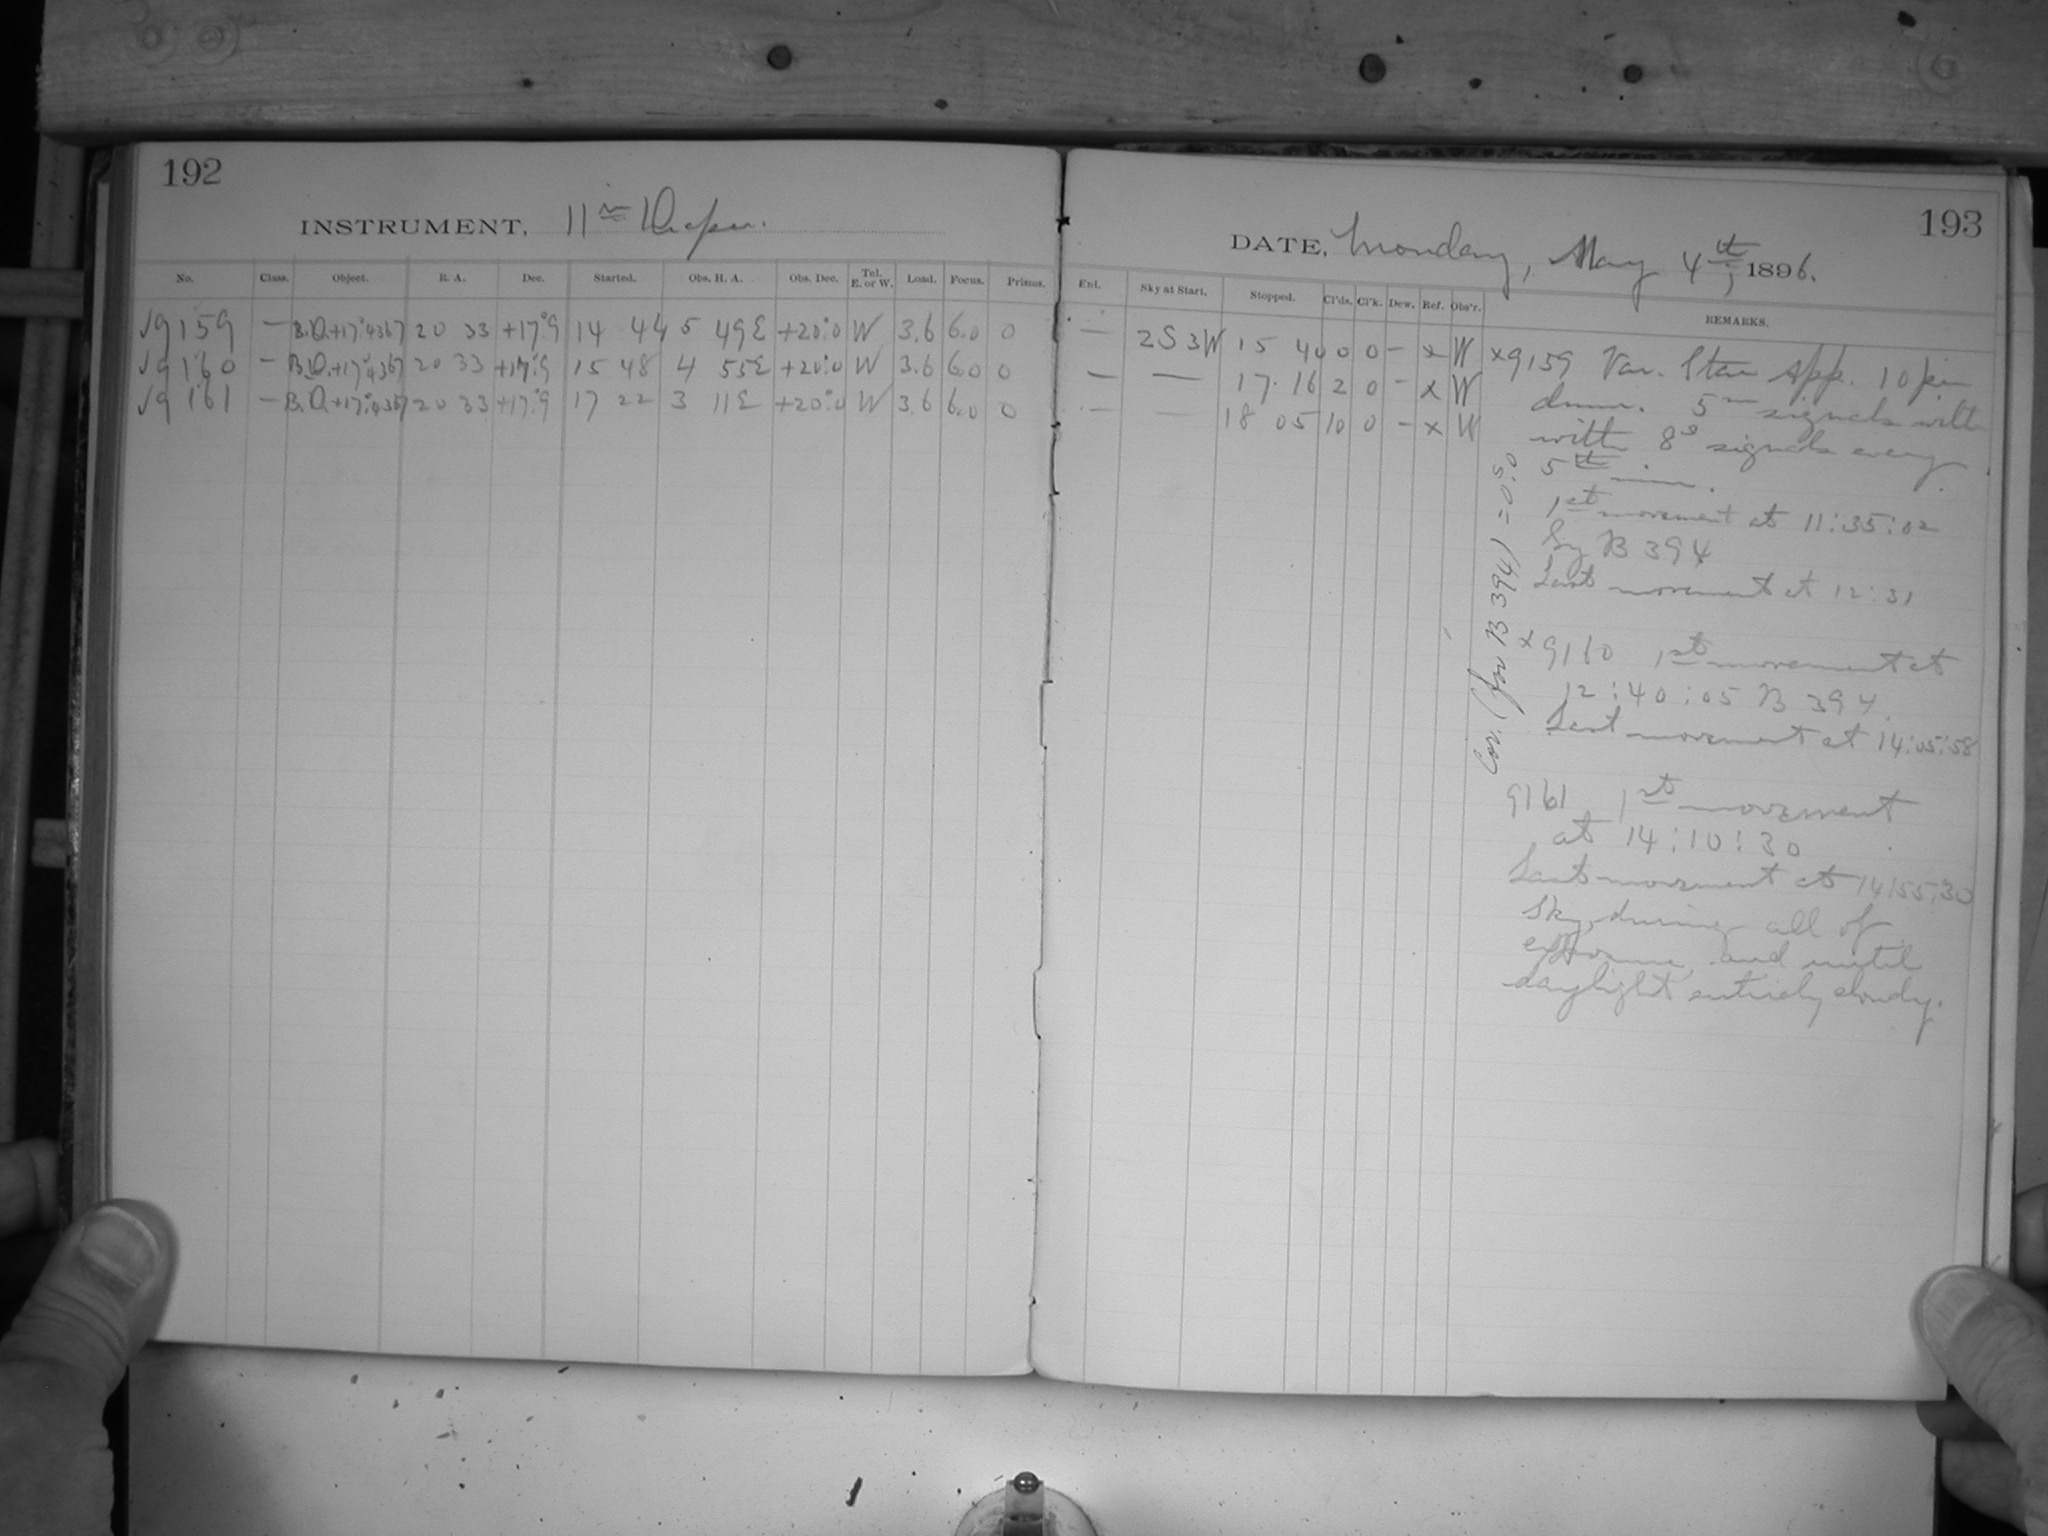 192
INSTRUMENT, 11 in Draper.
No. Class. Object. R. A. Dec. Started. Obs. H. A. Obs. Dec. Tel. E. or W. Load. Focus. Prisms.
√9159 — B.D.+17°4367 20 33 +17°.9 14 44 5 49E +20°.0 W 3.6 6.0 0
√9160 — B.D.+17°4367 20 33 +17°.9 15 48 4 55E +20°.0 W 3.6 6.0 0
√9161 — B.D.+17°4367 20 33 +17°.9 17 22 3 11E +20°.0 W 3.6 6.0 0
193
DATE, Monday, May 4th, 1896.
Enl. Sky at Start. Stopped. Cl'ds. Cl'k. Dew. Ref. Obs'r. REMARKS.
— 2S3W 15 40 0 0 – x W
— — 17 16 2 0 – x W
— — 18 05 10 0 – x W
x9159 Var. Star App. 10 pin
drum. 5m signals with
with 8s signals every
5th min.
1st movement at 11:35:02
by B 394
Last movement at 12:31
x9160 1st movement at
12:40:05 B 394.
Last movement at 14:05:58
9161 1st movement
at 14:10:30
Last movement at 14:55:30
Sky during all of
exposure and until
daylight entirely cloudy.
Cor. (for B 394) = 0.s0